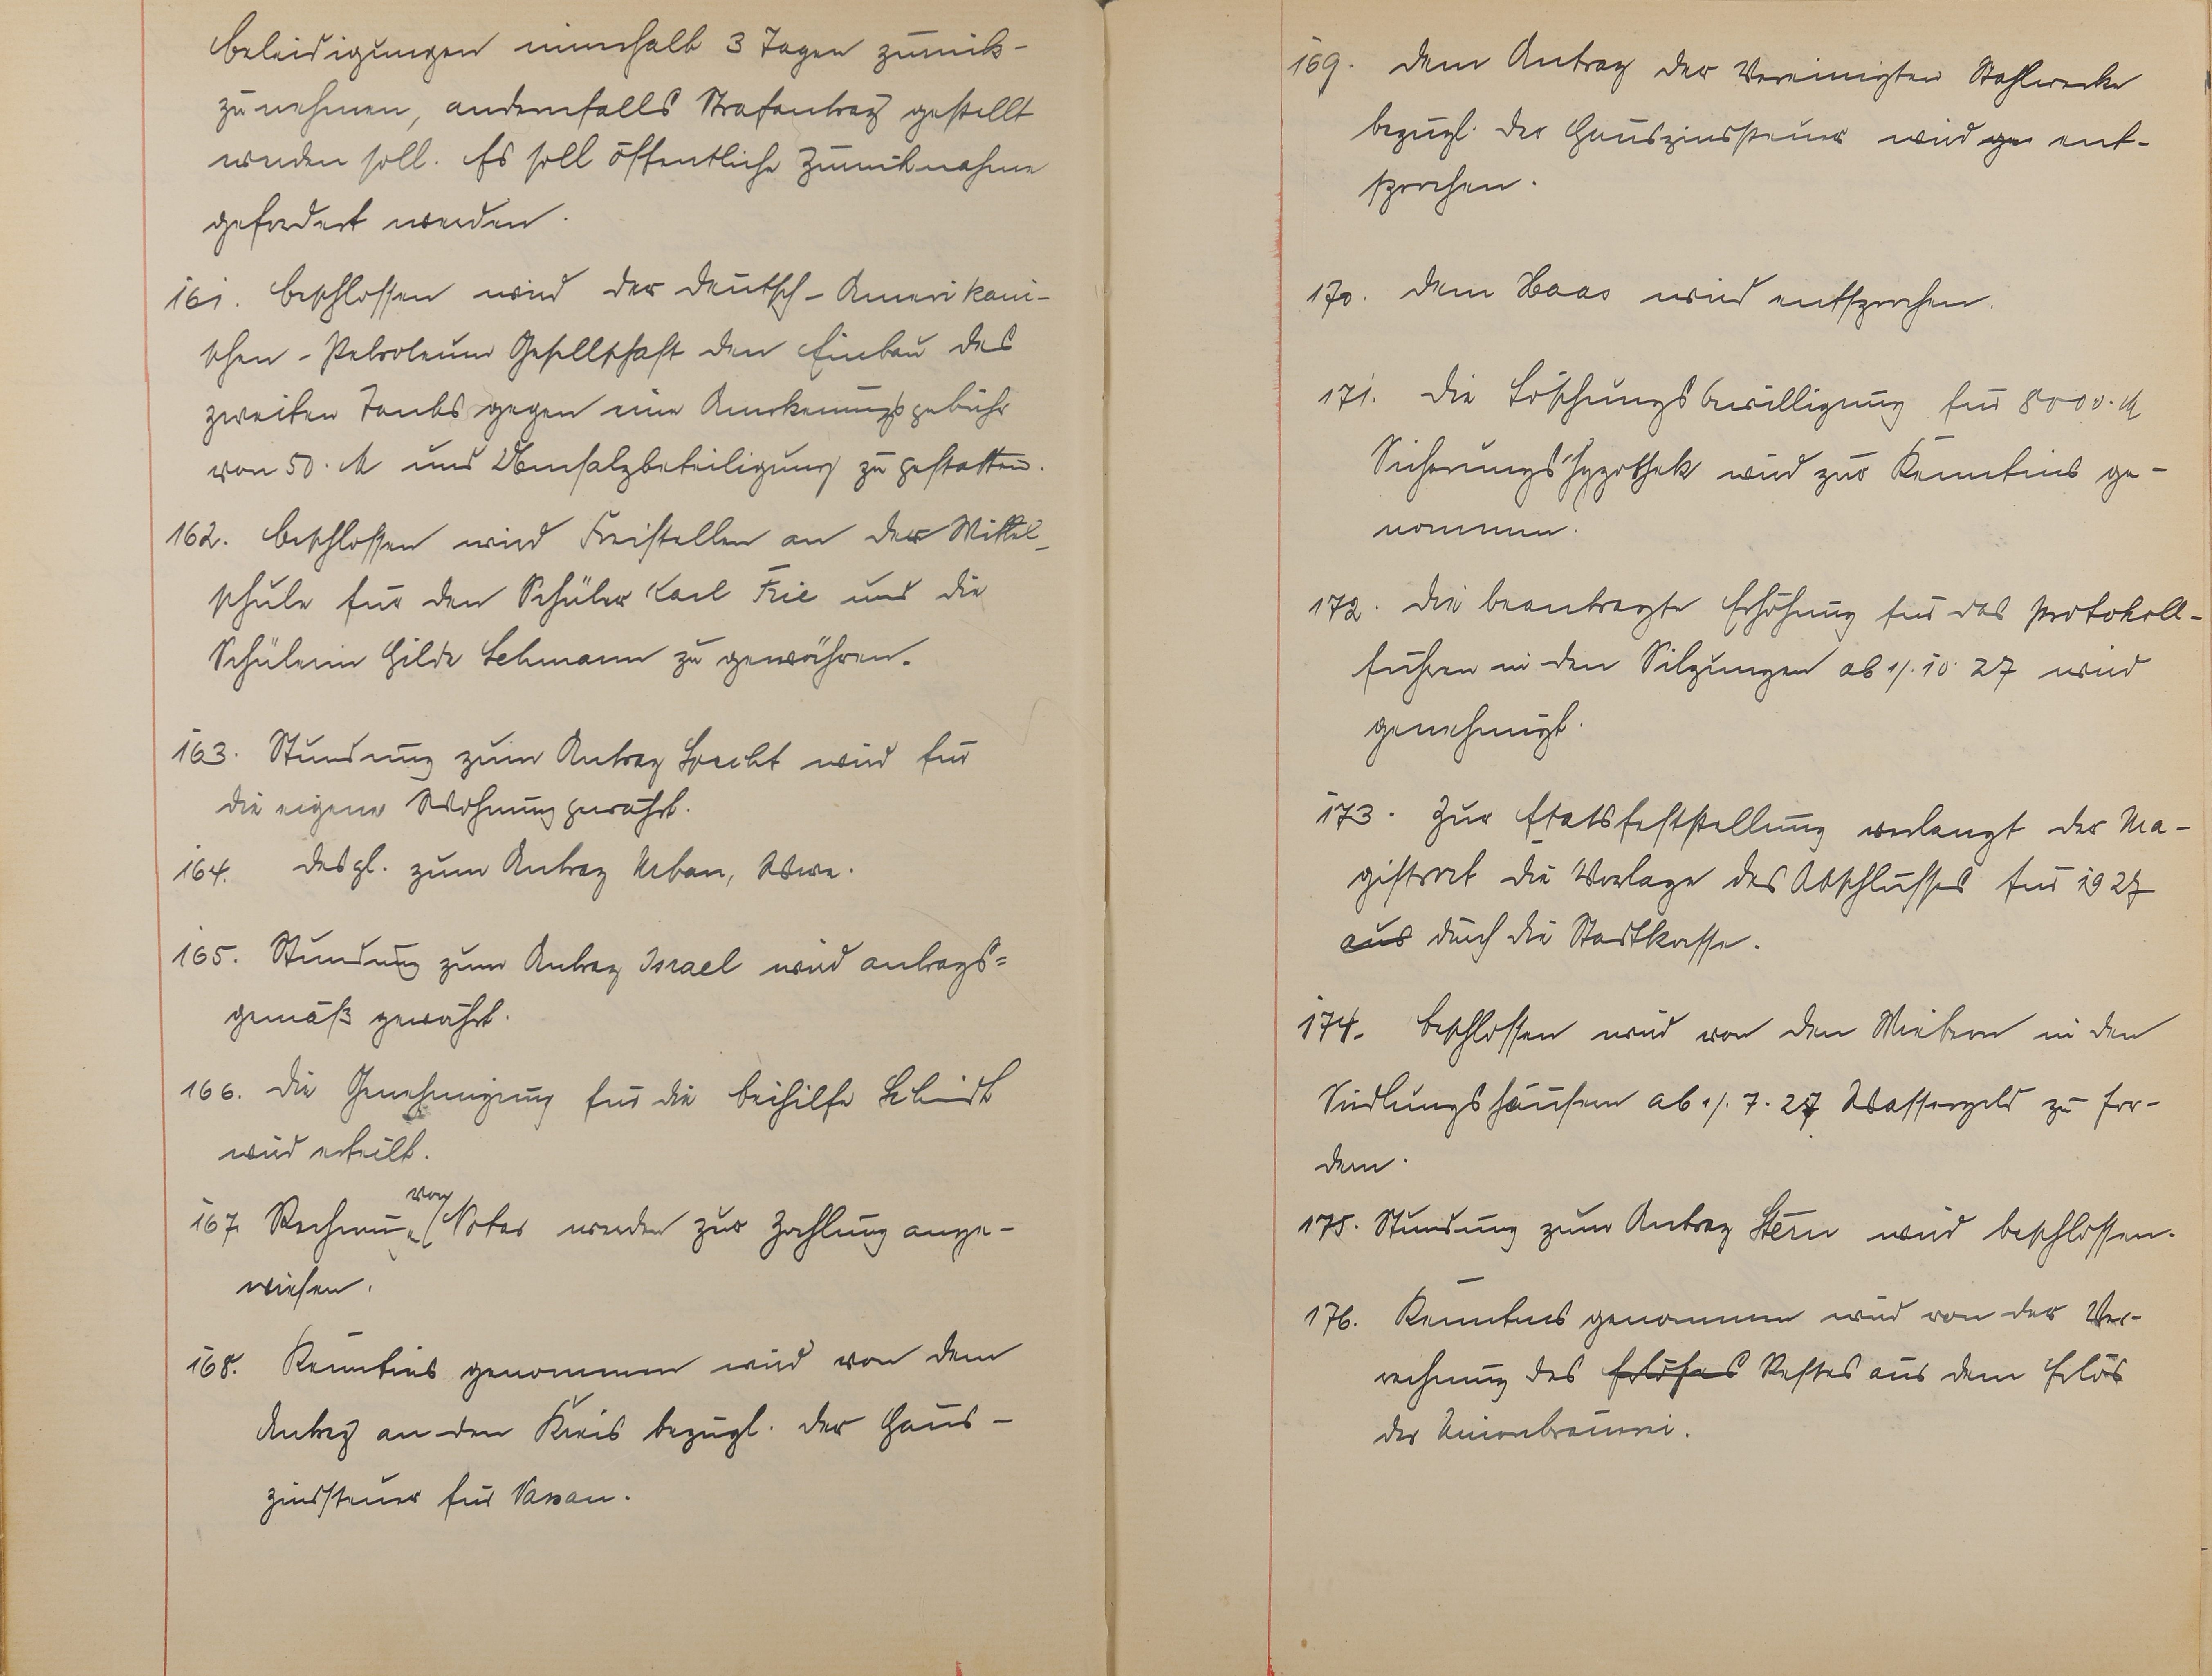 beleidigungen innerhalb 3 Tagen zurück-
zunehmen, andernfalls Strafantrag gestellt
werden soll. Es soll öffentliche Zurücknahme
gefordert werden.
161. Beschlossen wird der Deutsch-Amerikani-
schen-Petroleum Gesellschaft den Einbau des
zweiten Tanks gegen eine Anerkennungsgebühr
von 50. M und Umsatzbeteiligung zu gestatten.
162. Beschlossen wird Freistellen an der Mittel-
schule für den Schüler Karl Frie und die
Schülerin Hilde Lehmann zu gewähren.
163. Stundung zum Antrag Specht wird für
die eigene Wohnung gewährt.
164. desgl. zum Antrag Urban, Wwe.
165. Stundung zum Antrag Israel wird antrags=
gemäß gewährt.
166. Die Genehmigung für die Beihilfe Schmidt
wird erteilt.
von
167. Rechnung Notes werden zur Zahlung ange-
wiesen.
168. Kenntnis genommen wird von dem
Antrag an den Kreis bezügl. der Haus-
zinssteuer für
169. Dem Antrag der Vereinigten Stahlwerke
bezügl. der Hauszinssteuer wird ge ent-
sprochen.
170. Dem Haas wird entsprochen.
171. Die Löschungsbewilligung für 8000. M
Sicherungshypothek wird zur Kenntnis ge-
nommen.
172. Die beantragte Erhöhung für das Protokoll-
führen in den Sitzungen ab 1/. 10. 27 wird
genehmigt.
173. Zur Etatsfeststellung verlangt der Ma-
gistrat die Vorlage des Abschlusses für 1927
aus durch die Stadtkasse.
174. Beschlossen wird von den Mietern in den
Siedlungshäusern ab 1/. 7. 27 Wassergeld zu for-
dern.
175. Stundung zum Antrag Stern wird beschlossen.
176. Kenntnis genommen wird von der Ver-
rechnung des Erlöses Restes aus dem Erlös
der Unionbrauerei.